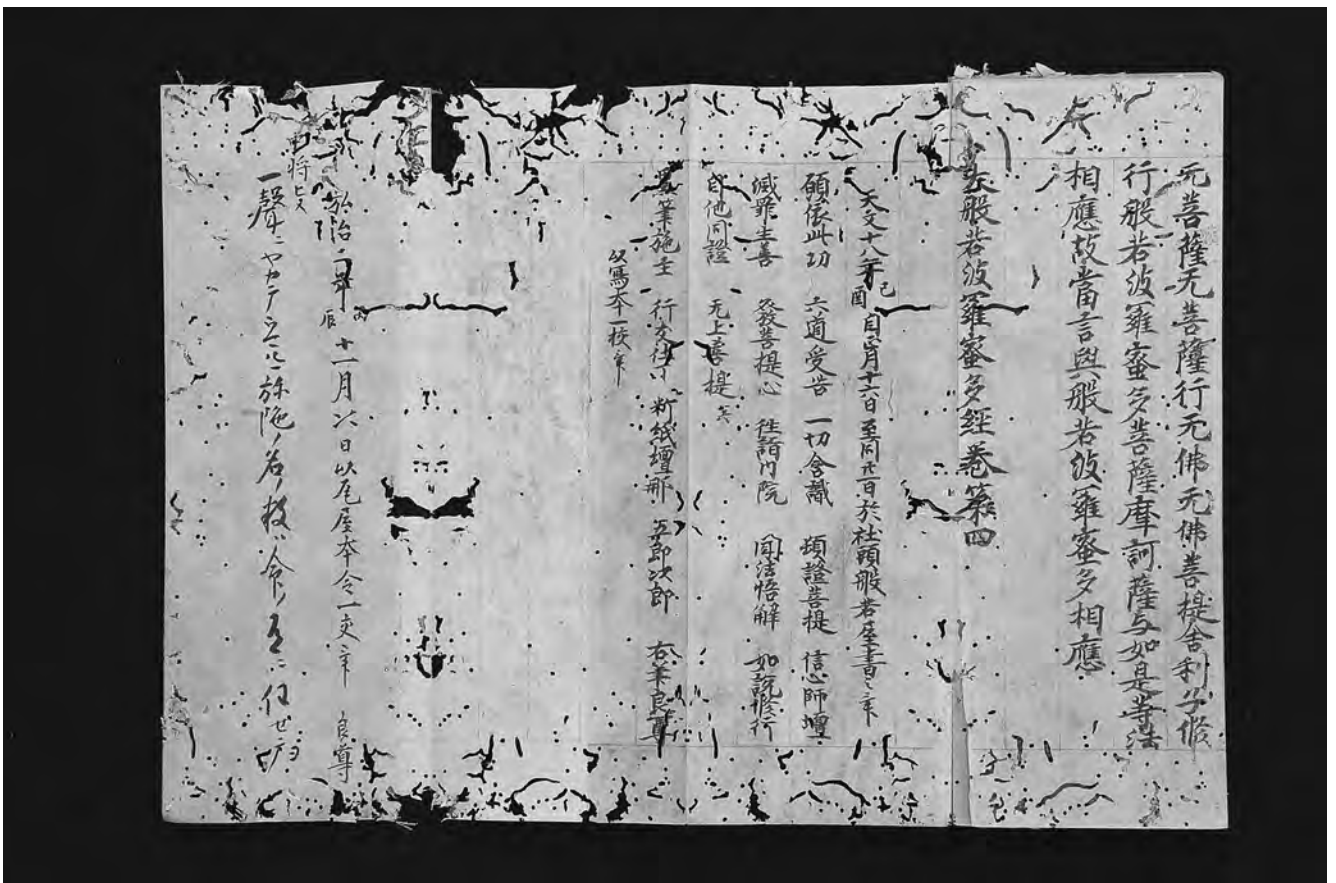 无菩薩无菩薩行无佛无佛菩提舍利子修
行般若波羅蜜多菩薩摩訶薩与如是等法
相應故當言與般若波羅蜜多相應
大般若波羅蜜多經卷第四
天文十八年己酉自正月十六日至同廿一日於社頭般若屋書之畢
願依此功 六道受苦 一切含識 頓證菩提 信心師壇
滅罪生善 發菩提心 往詣内院 聞法悟解 如説修行
自他同證 无上菩提
墨筆施主 行文 料紙壇那 五郎次郎 右筆良尊
以寫本一校畢
弘治二年丙辰十一月六日以尾屋本令一交畢 良尊
一聲ニヤカテ 弥陀ノ名ノ 命ノ